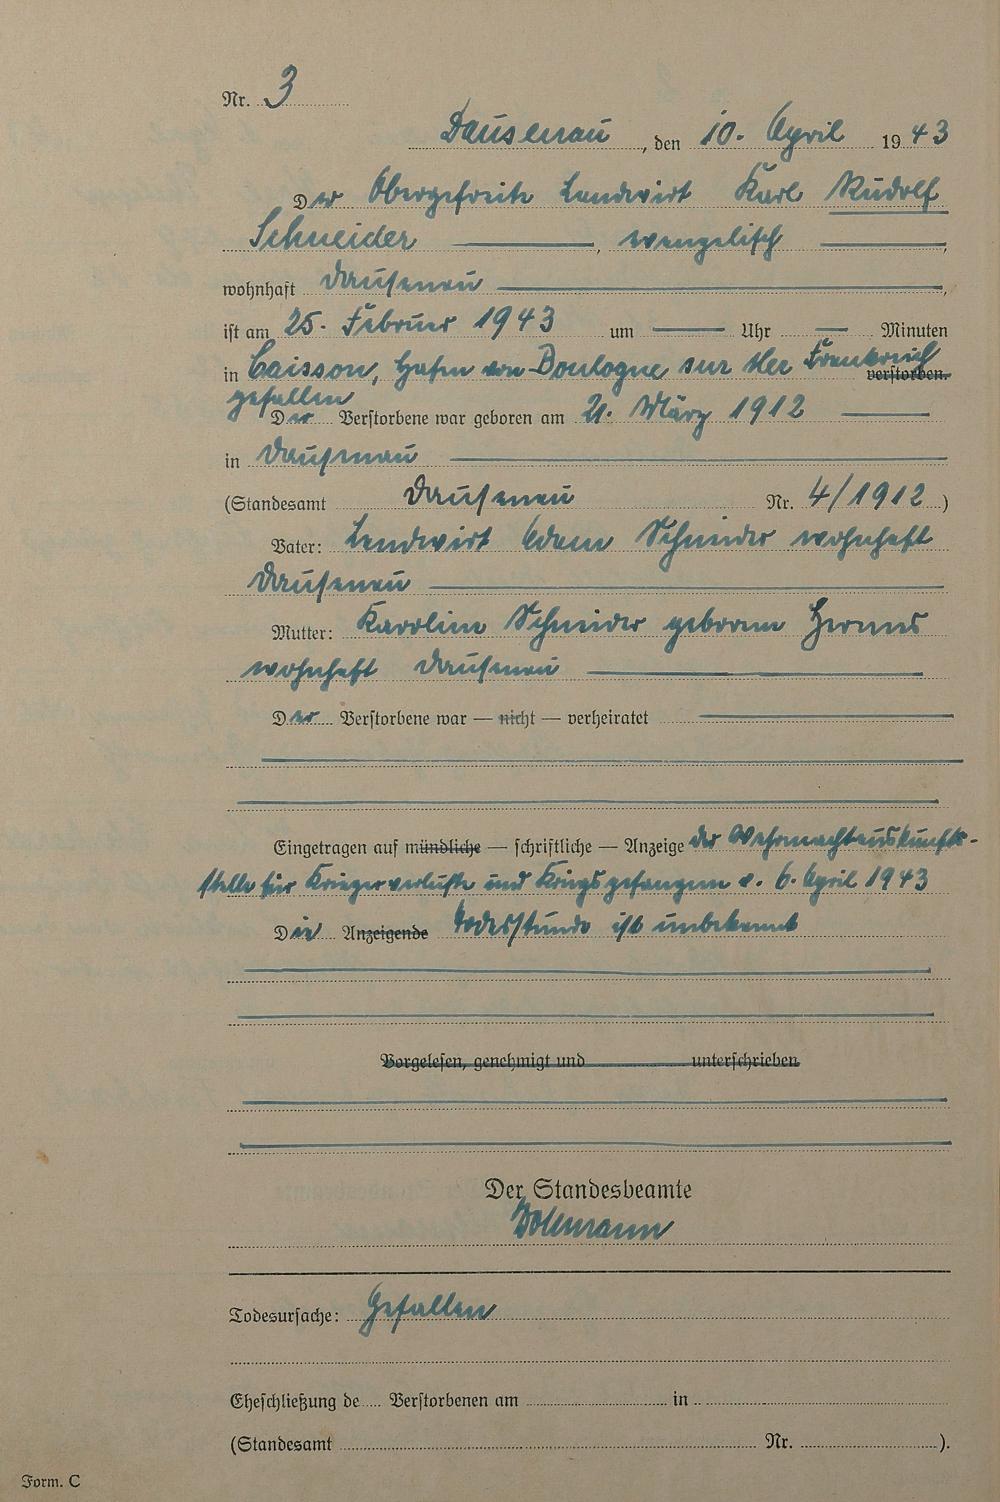 Nr. 3
Dausenau, den 10. April 1943
Der Obergefreite Landwirt Karl Rudolf
Schneider, evangelisch
wohnhaft Dausenau,
ist am 25. Februar 1943 um Uhr Minuten
in Caisson, Hafen von Boulogne sur Mer Frankreich verstorben.
gefallen
Der Verstorbene war geboren am 21. März 1912
in Dausenau
(Standesamt Dausenau Nr. 4/1912)
Vater: Landwirt Adam Schneider wohnhaft
Dausenau
Mutter: Karoline Schneider geborene Hermes
wohnhaft Dausenau
Der Verstorbene war — nicht — verheiratet
Eingetragen auf mündliche — schriftliche — Anzeige der Wehrmachtauskunfts-
stelle für Kriegerverluste und Kriegsgefangene v. 6. April 1943
Die Anzeigende Todesstunde ist unbekannt
Vorgelesen, genehmigt und unterschrieben
Der Standesbeamte
Todesursache: Gefallen
Eheschließung de Verstorbenen am in
(Standesamt Nr. ).
Form. C